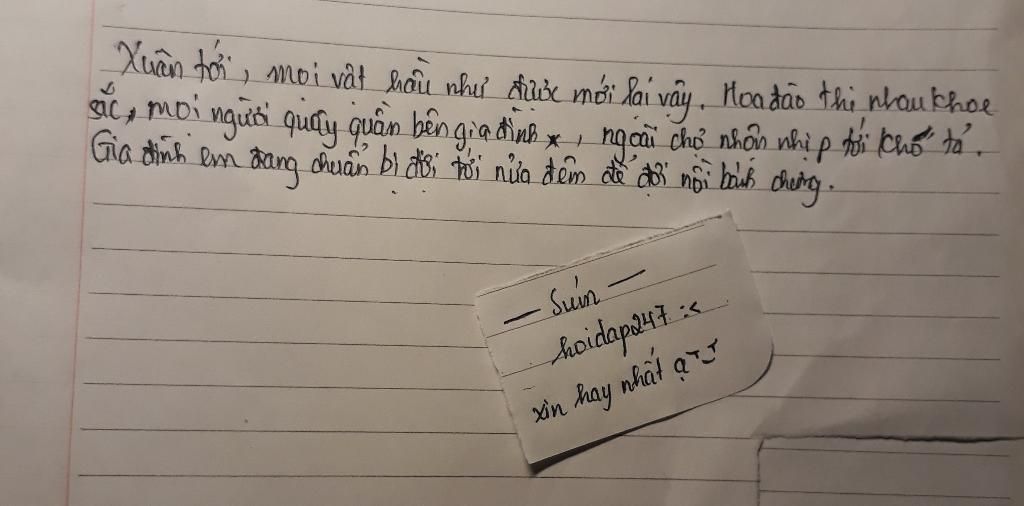 Xuân tới, mọi vật hầu như được mới lại vậy. Hoa đào thi nhau khoe
sắc, mọi người quây quần bên gia đình, ngoài chợ nhộn nhịp tới khó tả.
Gia đình em đang chuẩn bị đợi tới nửa đêm để đợi nồi bánh chưng.
— Sún —
hoidap247 :<
xin hay nhất ạ